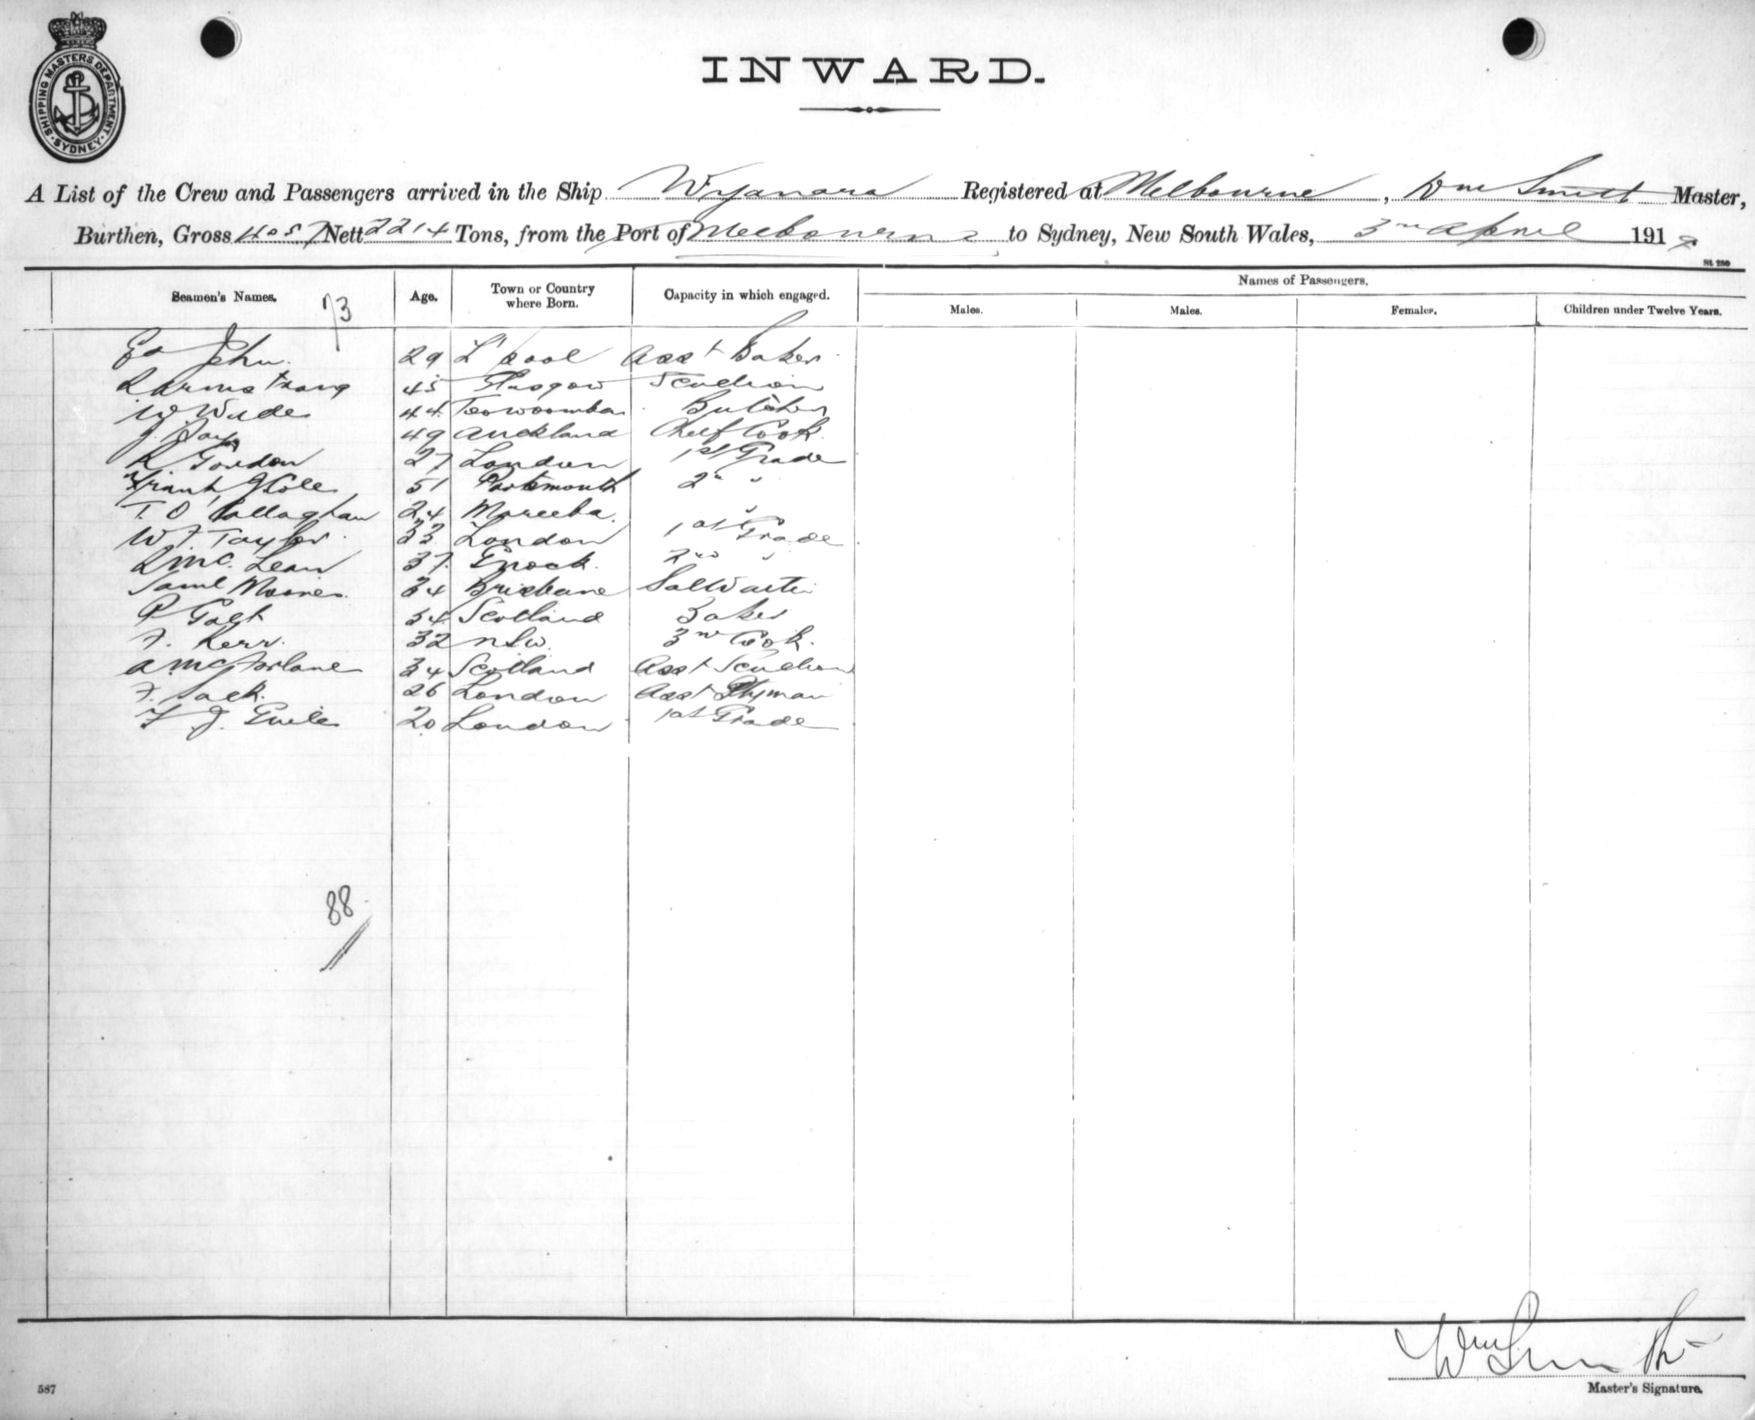 SHIPPING MASTERS DEPARTMENT. SYDNEY
INWARD.
A List of the Crew and Passengers arrived in the Ship Registered at Melbourne, Wm Smith Master,
Burthen, Gross 4057 Nett 2214 Tons, from the Port of Melbourne to Sydney, New South Wales, 3rd April 191
St. 280
Seamen's Names. Age. Town or Country where Born. Capacity in which engaged. Names of Passengers.
Males. Males. Females. Children under Twelve Years.
73
John 29 L'pool Asst Baker
Armstrong 45 Glasgow Scullion
W Wade 44 Toowoomba Butcher
J. 49 Auckland Chief Cook
R. Gordon 27 London 1st Grade
Frank J Cole 51 Portsmouth 2n "
T. O'Callaghan 24 Mareeba. "
W F Taylor 33 London 1st Grade
McLean 37 2nd "
Saml 34 Brisbane
P Galt 34 Scotland Baker
F. Kerr. 32 NSW. 3rd Cook.
A McFarlane 34 Scotland Asst Scullion
F. 26 London Asst
F J. 20 London 1st Grade
88
Wm Smith
Master's Signature.
587